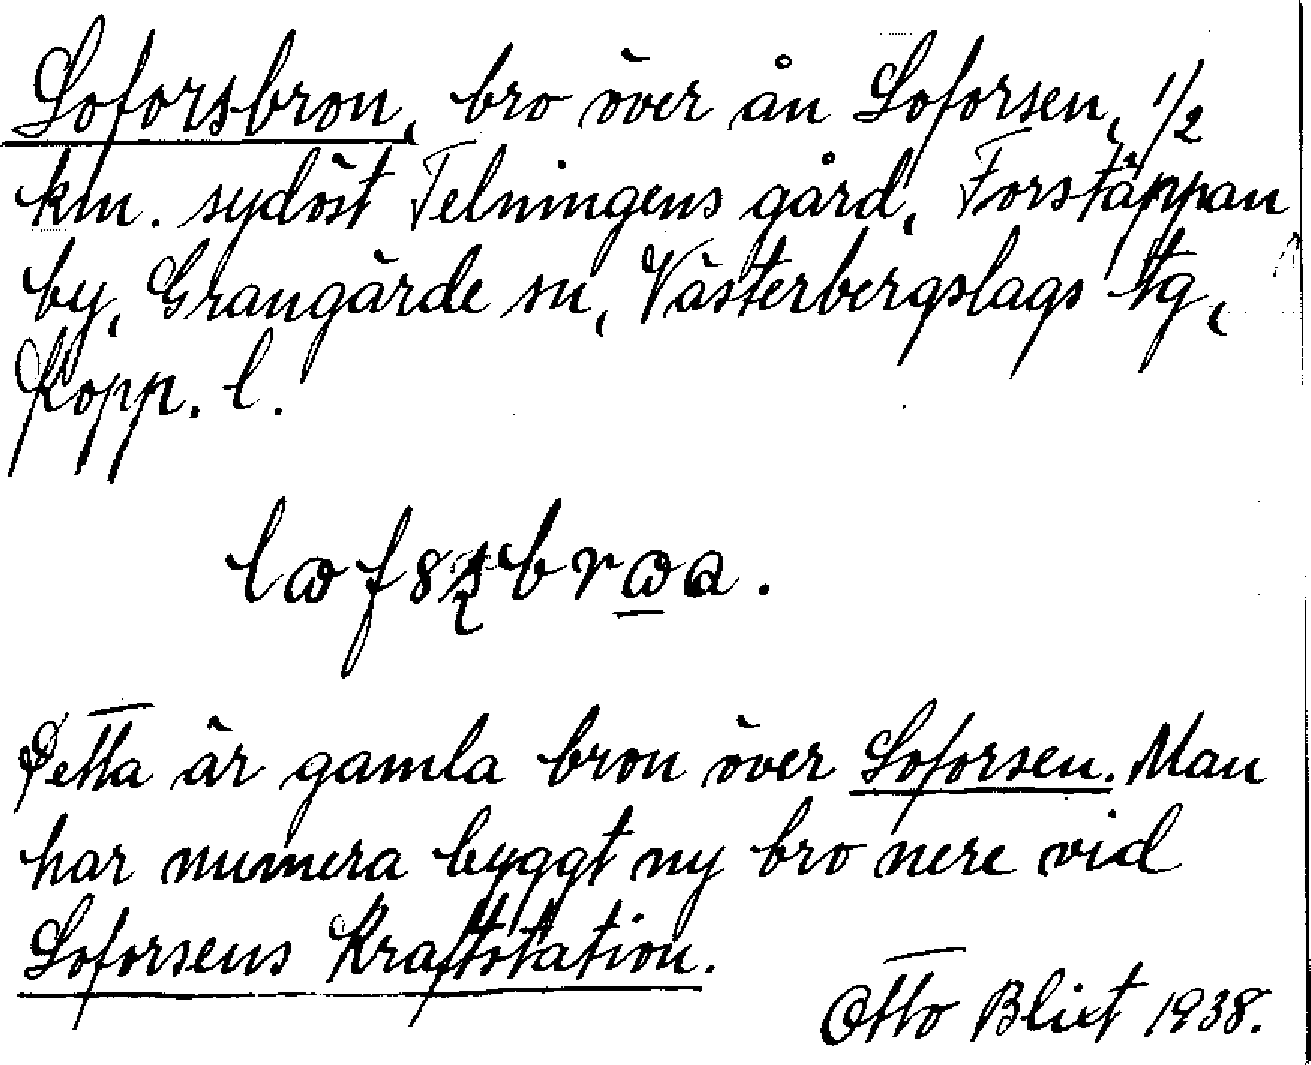 Loforsbron, bro över ån Loforsen, 1/2
km. sydöst Telningens gård, Forstäppan
by, Grangärde sn, Västerbergslags tg,
Kopp. l.
Detta är gamla bron över Loforsen. Man
har numera byggt ny bro nere vid
Loforsens Kraftstation.
Otto Blixt 1938.